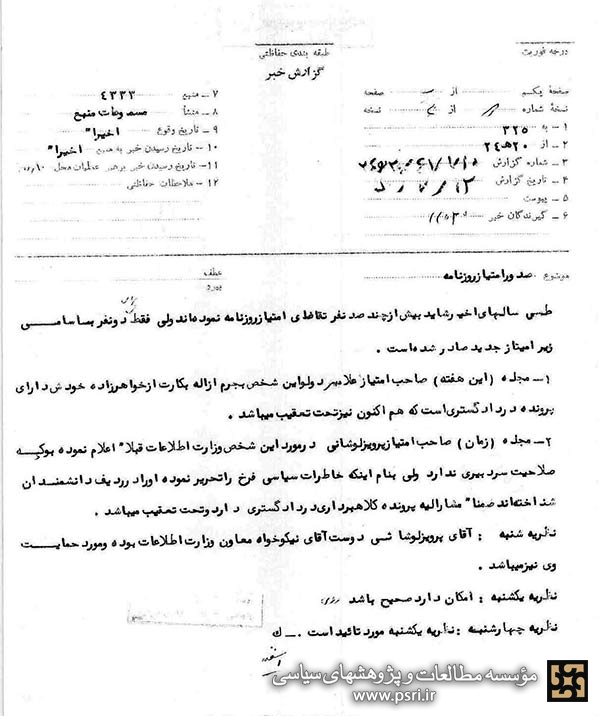 درجه فوریت
طبقه بندی حفاظتی
گزارش خبر
صفحه یکم از صفحه
نسخه شماره از نسخه
۱ – به ۳۲۵
۲ – از ۲۰ﻫ۲۴
۳ – شماره گزارش
۴ – تاریخ گزارش
۵ – پیوست
۶ – گیرندگان خبر
۷ – منبع ۴۳۳۳
۸ – منشأ مسموعات منبع
۹ – تاریخ وقوع اخیرا"
۱۰ – تاریخ رسیدن خبر به منبع اخیرا"
۱۱ – تاریخ رسیدن خبر برهبر عملیات محل
۱۲ – ملاحظات حفاظتی
موضوع صدور امتیاز روزنامه
عطف
پیرو
طی سالهای اخیر شاید بیش از چند صد نفر تقاضای امتیاز روزنامه نموده‌اند ولی فقط دو نفر بسامی
زیر امتیاز جدید صادر شده است .
۱ – مجله (این هفته) صاحب امتیاز این شخص بجرم ازاله بکارت از خواهرزاده خودش دارای
پرونده در دادگستری است که هم اکنون نیز تحت تعقیب میباشد .
۲ – مجله (زمان) صاحب امتیاز پرویز لوشانی در مورد این شخص وزارت اطلاعات قبلا" اعلام نموده بوکیه
صلاحیت سردبیری ندارد ولی بنام اینکه خاطرات سیاسی فرخ را تحریر نموده او را در ردیف دانشمندان
شناخته‌اند ضمنا" مشارالیه پرونده کلاهبرداری در دادگستری دارد و تحت تعقیب میباشد .
نظریه شنبه : آقای پرویز لوشانی دوست آقای نیکوخواه معاون وزارت اطلاعات بوده و مورد حمایت
وی نیز میباشد .
نظریه یکشنبه : امکان دارد صحیح باشد
نظریه چهارشنبه : نظریه یکشنبه مورد تائید است . – ک
مؤسسه مطالعات و پژوهشهای سیاسی
www.psri.ir